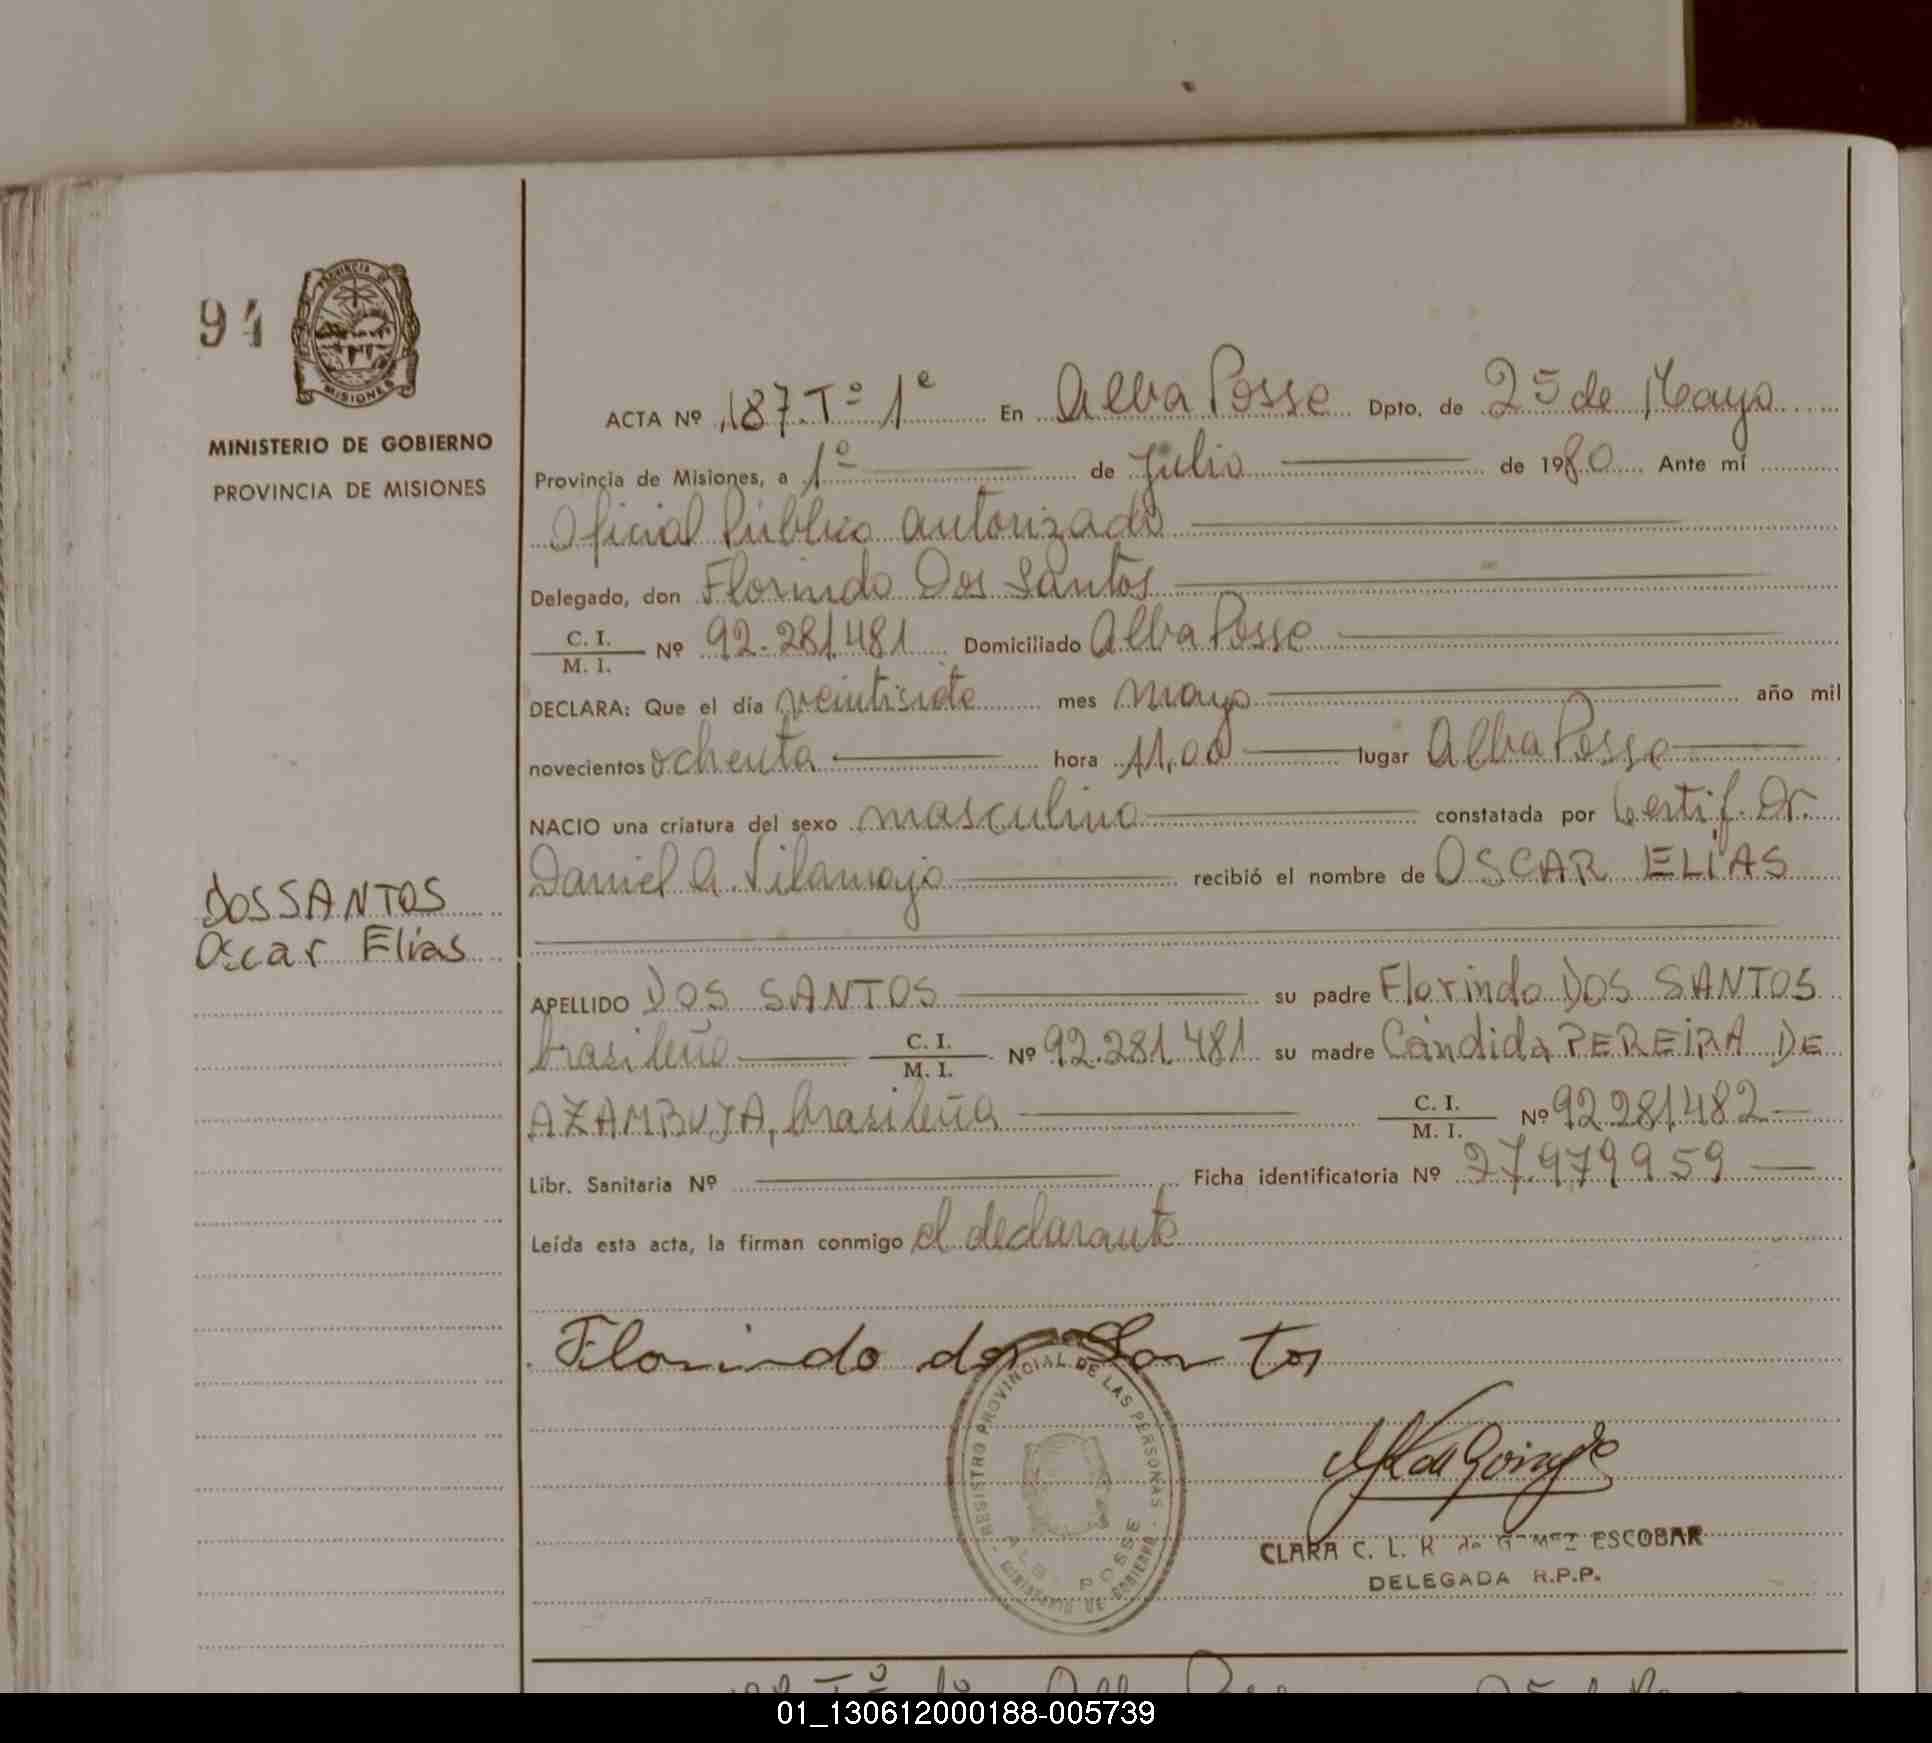 94
PROVINCIA DE
MISIONES
MINISTERIO DE GOBIERNO
PROVINCIA DE MISIONES
ACTA Nº 187.Tº 1º En Alba Posse Dpto. de 25 de Mayo
Provincia de Misiones, a 1º de julio de 1980 Ante mí
Oficial Público autorizado
Delegado, don Florindo Dos Santos
C. I.
M. I. Nº 92.281.481 Domiciliado Alba Posse
DECLARA: Que el día veintisiete mes mayo año mil
novecientos ochenta hora 11,00 lugar Alba Posse
NACIO una criatura del sexo masculino constatada por Certif. Dr.
Daniel A. Vilamajo recibió el nombre de OSCAR ELIAS
DOS SANTOS
Oscar Elías
APELLIDO DOS SANTOS su padre Florindo DOS SANTOS
brasileño C. I.
M. I. Nº 92.281.481 su madre Cándida PEREIRA DE
AZAMBUJA, brasileña C. I.
M. I. Nº 92.281.482
Libr. Sanitaria Nº Ficha identificatoria Nº 27.979959
Leída esta acta, la firman conmigo el declarante
Florindo dos Santos
REGISTRO PROVINCIAL DE LAS PERSONAS
ALBA POSSE
CLARA C. L. R. de GOMEZ ESCOBAR
DELEGADA R.P.P.
01_130612000188-005739